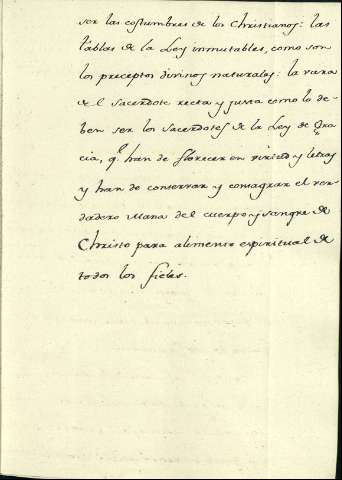 ser las costumbres de los Christianos: las
tablas de la Ley inmutables, como son
los preceptos divinos naturales: la vara
de el Sacerdote recta y justa como lo de-
ben ser los Sacerdotes de la Ley de Gra-
cia, q.e han de florecer en virtud y letras
y han de conservar y consagrar el ver-
dadero Mana del cuerpo y sangre de
Christo para alimento espiritual de
todos los fieles.